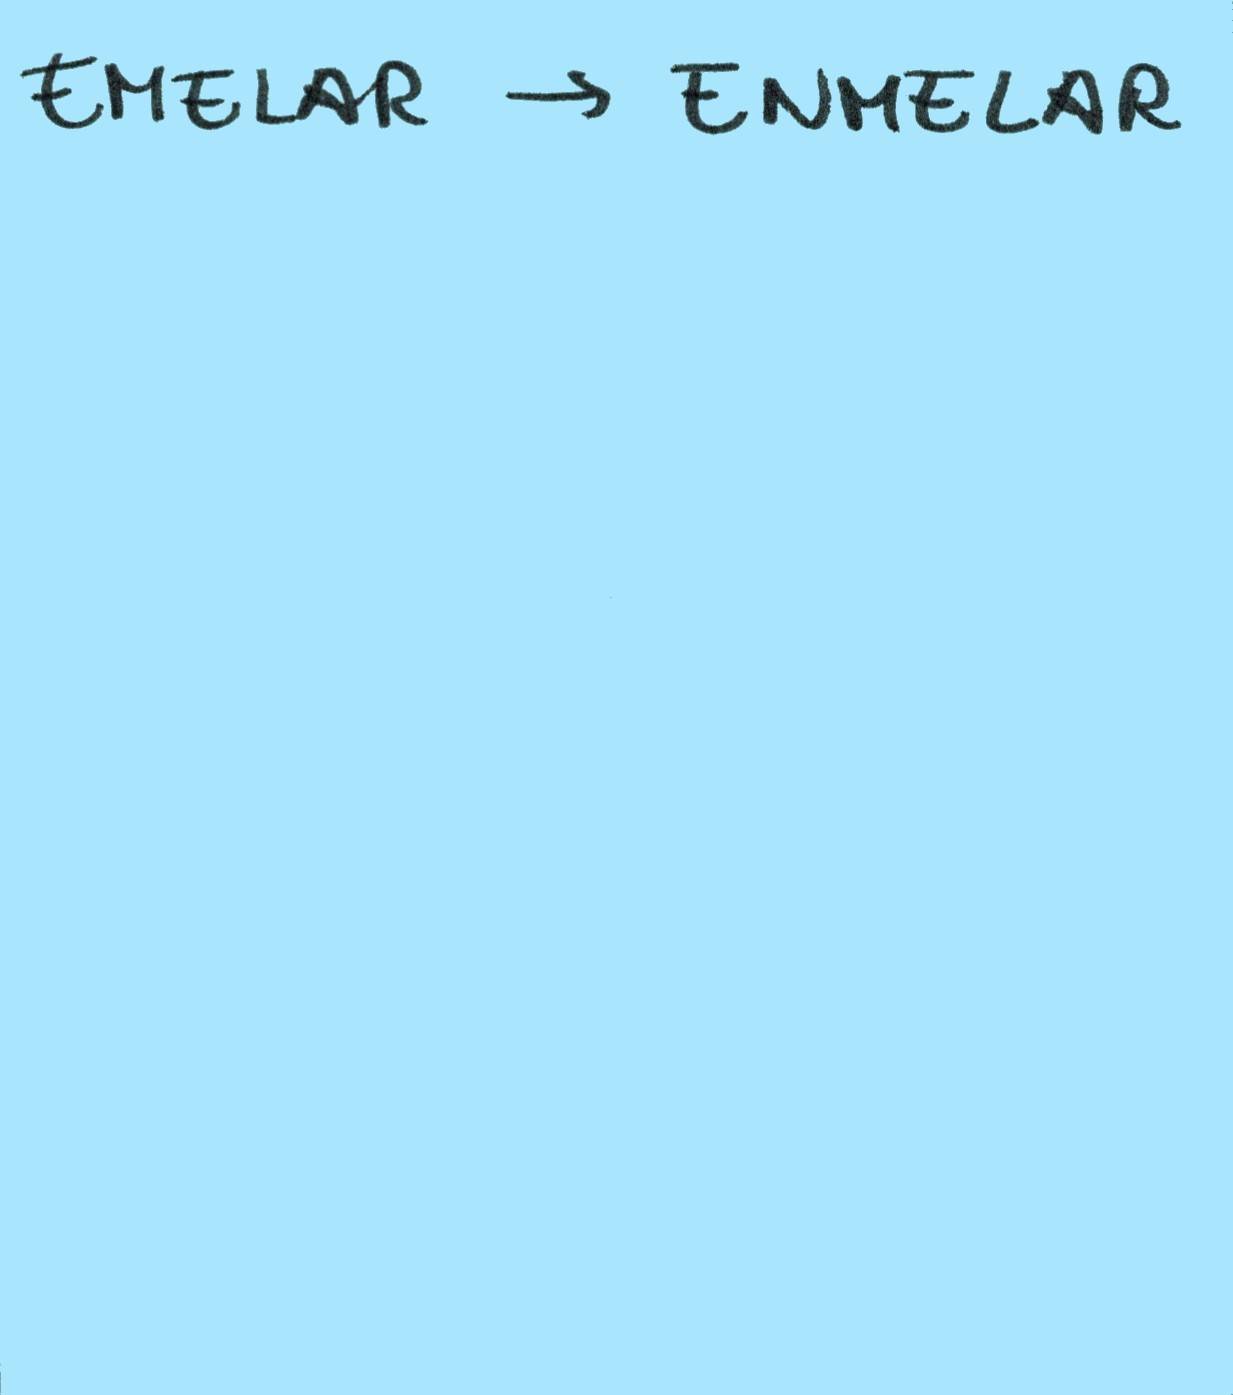 EMELAR → ENMELAR